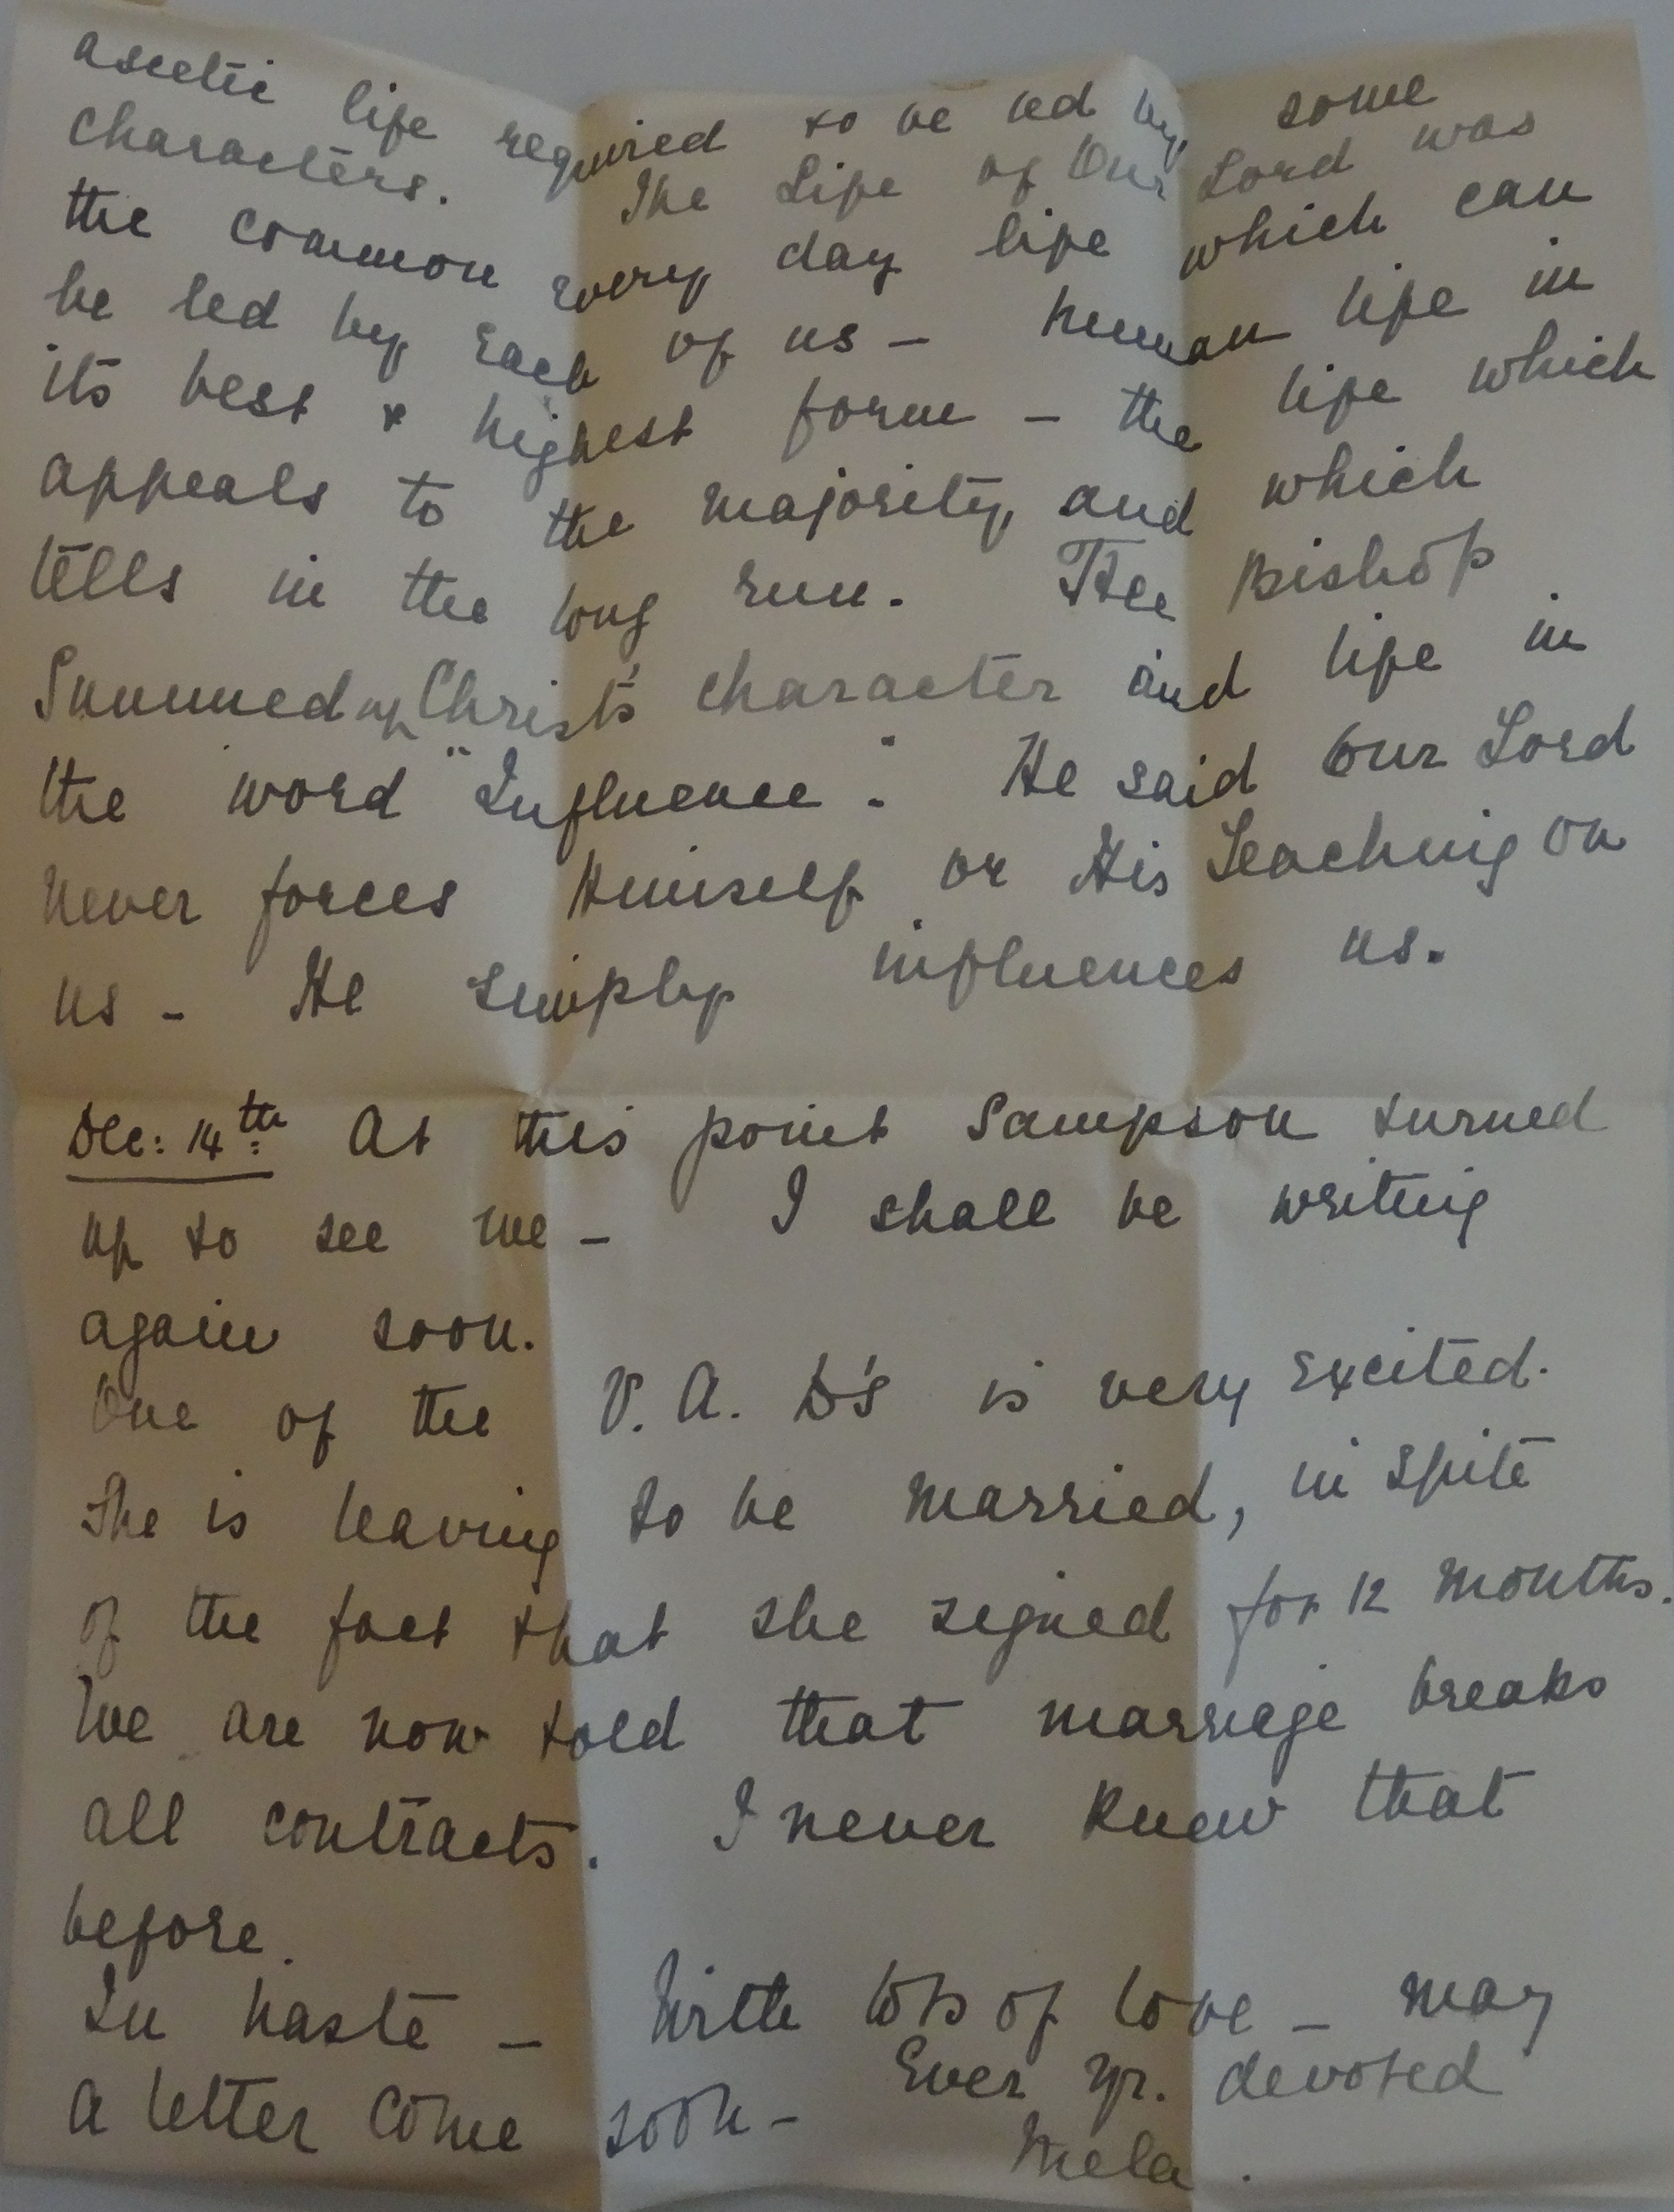 ascetic life required to be led by some
characters. The Life of Our Lord was
the common every day life which can
be led by each of us – human life in
its best & highest form – the life which
appeals to the majority, and which
tells in the long run. The Bishop
Summed up Christ's character and life in
the word "Influence". He said Our Lord
never forces Himself or His Teaching on
us – He simply influences us.
Dec: 14th At this point Sampson turned
up to see me – I shall be writing
again soon.
One of the V. A. D's is very excited.
She is leaving to be married, in spite
of the fact that she signed for 12 months.
We are now told that marriage breaks
all contracts. I never knew that
before.
In haste – With lots of love – may
a letter come soon – Ever yr. devoted
Mela.